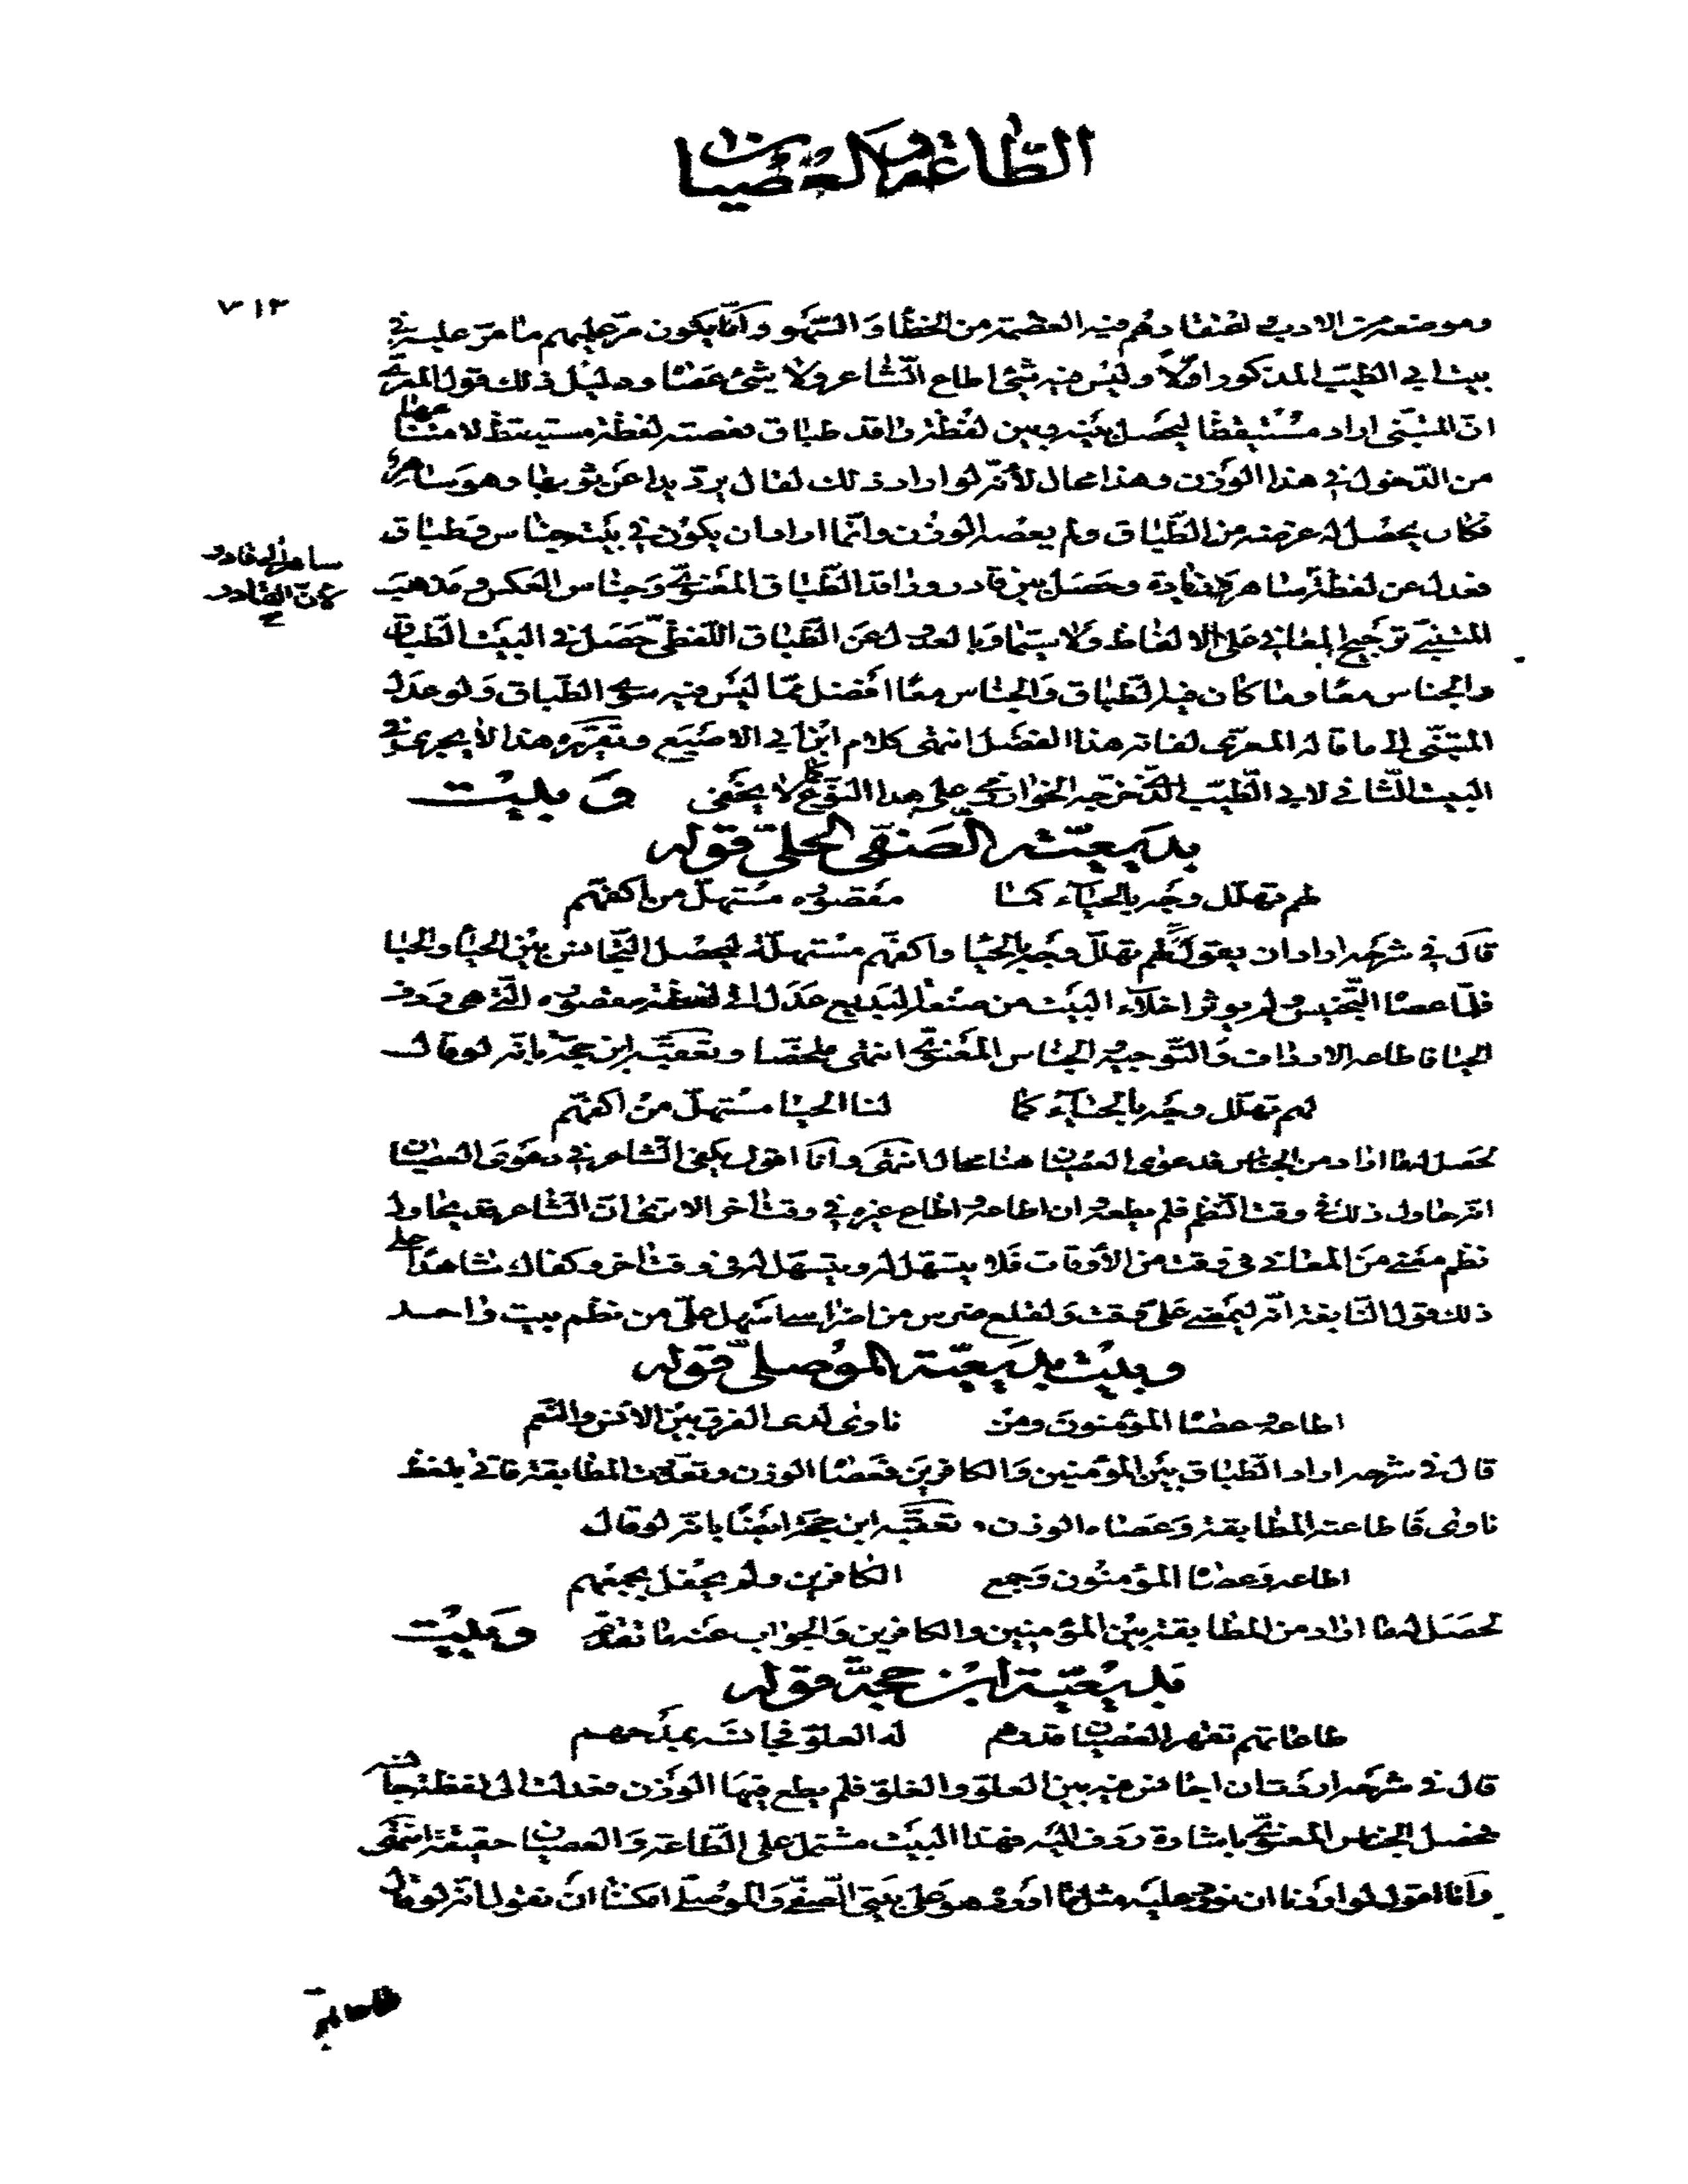 الطاعة والعصيان
٧١٣
وموضعه من الادب و اعتقادهم فيه العصمة من الخطأ والسهو وانما يكون مر عليهم ما مر عليه في
بيت ابي الطيب المذكور اولا وليس فيه شئ اطاع الشاعر ولا شئ عصاه ودليل ذلك قول المعري
ان المتنبي اراد مستيقظا ليحصل بينه وبين لفظة راقد طباق فعصته لفظة مستيقظ لامتناعها
من الدخول في هذا الوزن وهذا محال لأنه لو اراد ذلك لقال يرد يدا عن ثوبها وهو ساهر
فكان يحصل له غرضه من الطباق ولم يعصه الوزن وانما اراد ان يكون في بيته جناس وطباق
فعدل عن لفظة ساهر الى قادر وحصل بين قادر وراقد الطباق المعنوي وجناس العكس ومذهب
المتنبي ترجيح المعاني على الالفاظ ولا سيما وبالعدول عن الطباق اللفظي حصل في البيت الطباق
والجناس معا وما كان فيه الطباق والجناس معا افضل مما ليس فيه سوى الطباق ولو عدل
المتنبي الى ما قاله المعري لفاته هذا الفضل انتهى كلام ابن ابي الاصبع وتقريره هذا لا يجري في
البيت الثاني لابي الطيب الذي خرجه على هذا النوع كما لا يخفى وبيت
بديعية الصفي الحلي قوله
لهم تهلل وجه بالحياء كما مقصوره مستهل من اكفهم
قال في شرحه اراد ان يقول لهم تهلل وجه بالحيا واكفهم مستهلة ليحصل التجانس بين الحياء والحيا
فلما عصاه التجنيس ولم يوثر اخلاء البيت من صنعة البديع عدل الى لفظة مقصوره التي هي ردف
الحيا فاطاعه الارداف والتوجيه الجناس المعنوي انتهى ملخصا وتعقبه ابن حجة بانه لو قال
لهم تهلل وجه بالحياء كما لنا الحيا مستهل من اكفهم
لحصل له ما اراد من الجناس فدعوى العصيان هنا محال انتهى وانا اقول يكفى الشاعر في دعوى العصيان
انه حاول ذلك في وقت النظم فلم يطعه وان اطاعه او اطاع غيره في وقت آخر الا ترى ان الشاعر قد يحاول
نظم معنى من المعانى في وقت من الأوقات فلا يتسهل له ويتسهل له في وقت آخر وكفاك شاهدا على
ذلك قول النابغة انه ليمضى علي وقت ولقلع ضرس من اضراسي اسهل علي من نظم بيت واحد
وبيت بديعية الموصلي قوله
اطاعه وعصاه المؤمنون ومن ناوى لدى الفرق بين الانس والنعم
قال في شرحه اراد الطباق بين المؤمنين والكافرين فعصاه الوزن وتعذرت المطابقة فاتى بلفظ
ناوى فاطاعته المطابقة وعصاه الوزن وتعقبه ابن حجة ايضا بانه لو قال
اطاعه وعصاه المؤمنون وجمع الكافرين ولم يحفل بجمعهم
لحصل له ما اراد من المطابقة بين المؤمنين والكافرين والجواب عنه ما تقدم وبيت
بديعية ابن حجة قوله
طاعاتهم تقهر العصيان قدرهم له العلو فجانسه بمدحهم
قال في شرحه اردت ان اجانس فيه بين العلو والغلو فلم يطع فيها الوزن فعدلت الى لفظة جانسه
فحصل الجناس المعنوي باشارة ردف اليه فهذا البيت مشتمل على الطاعة والعصيان حقيقة انتهى
وانا اقول لو اردنا ان نورد عليه مثل ما اورده هو على بيتي الصفي والموصلي امكننا ان نقول انه لو قال
ساهر الى قادر